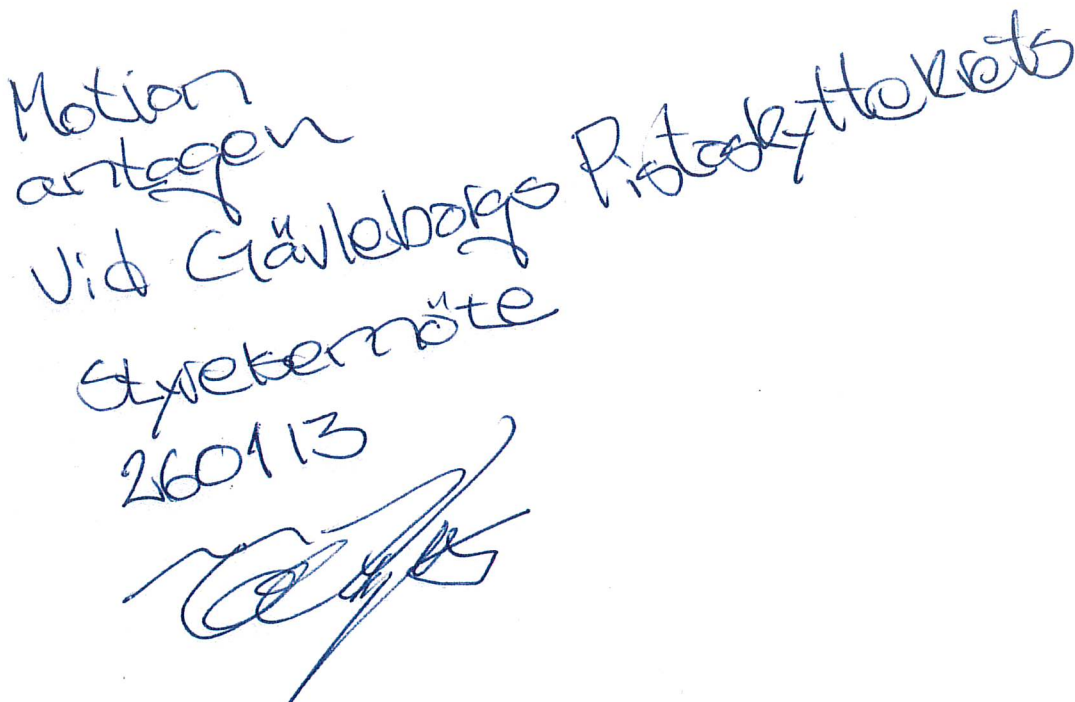 Motion
antagen
vid Gävleborgs Pistolskyttekrets
Styrelsemöte
260113